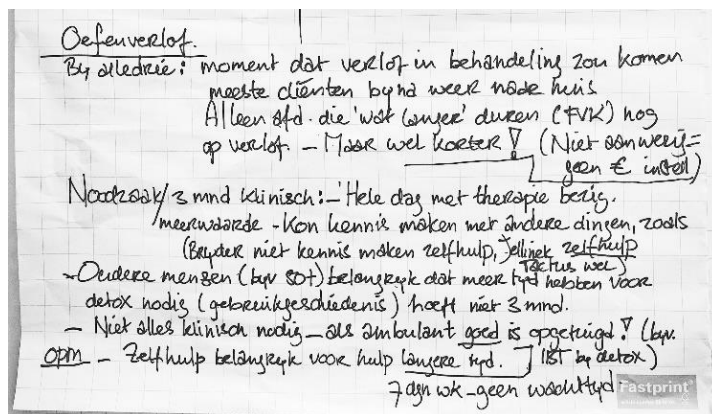 Oefenverlof.
By alledrie: moment dat verlof in behandeling zou komen
meeste cliënten byna weer naar huis
Alleen afd. die 'wat langer' duren (FVK) nog
op verlof. - Maar wel korter! (Niet aanwezig=
geen € instell)
Noodzaak/3 mnd klinisch: - 'Hele dag met therapie bezig.
meerwaarde - Kon kennis maken met andere dingen, zoals
(Bryder niet kennis maken zelfhulp, Jellinek zelfhulp
Tactus wel)
- Oudere mensen (byv 50+) belangryk dat meer tyd hebben voor
detox nodig (gebruikgeschiedenis) hoeft niet 3 mnd.
- Niet alles klinisch nodig - als ambulant goed is opgetuigd! (byv.
opm - Zelfhulp belangryk voor hulp langere tyd. IBT by detox)
7 dgn wk - geen wachttyd
Fastprint